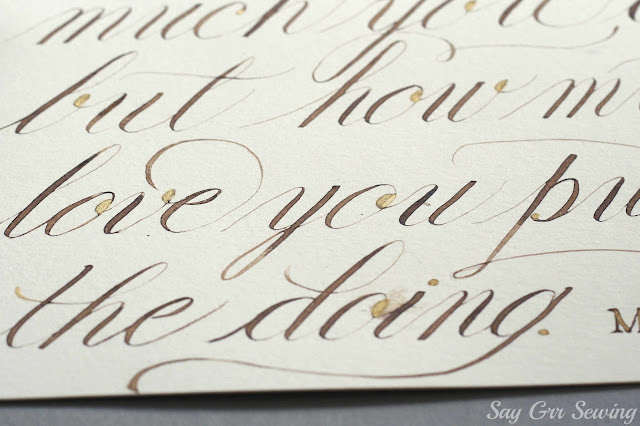 much you
but how m
love you pu
the doing.
M
Say Grr Sewing